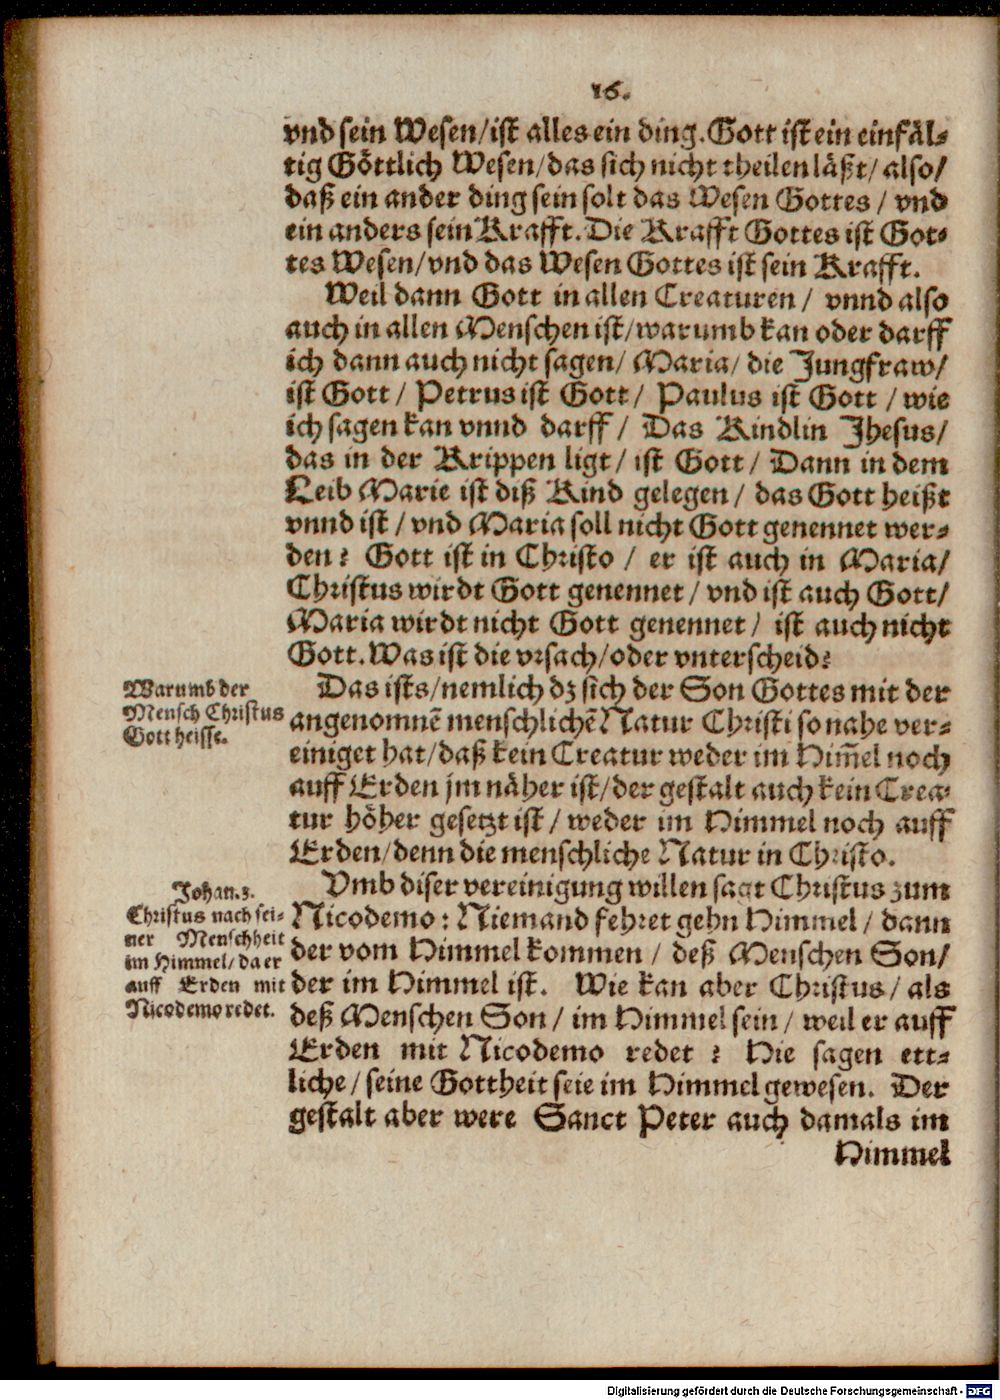 16.
vnd sein Wesen/ist alles ein ding. Gott ist ein einfäl-
tig Göttlich Wesen/das sich nicht theilen läßt/ also/
daß ein ander ding sein solt das Wesen Gottes / vnd
ein anders sein Krafft. Die Krafft Gottes ist Got-
tes Wesen/vnd das Wesen Gottes ist sein Krafft.
Weil dann Gott in allen Creaturen / vnnd also
auch in allen Menschen ist/warumb kan oder darff
ich dann auch nicht sagen/ Maria/ die Jungfraw/
ist Gott / Petrus ist Gott/ Paulus ist Gott / wie
ich sagen kan vnnd darff / Das Kindlin Jhesus/
das in der Krippen ligt/ ist Gott/ Dann in dem
Leib Marie ist diß Kind gelegen/ das Gott heißt
vnnd ist / vnd Maria soll nicht Gott genennet wer-
den? Gott ist in Christo / er ist auch in Maria/
Christus wirdt Gott genennet/ vnd ist auch Gott/
Maria wirdt nicht Gott genennet/ ist auch nicht
Gott. Was ist die vrsach/oder vnterscheid?
Warumb der
Mensch Christus
Gott heisse.
Das ists/nemlich dz sich der Son Gottes mit der
angenomnē menschlichē Natur Christi so nahe ver-
einiget hat/daß kein Creatur weder im Him̄el noch
auff Erden jm näher ist/der gestalt auch kein Crea-
tur höher gesetzt ist / weder im Himmel noch auff
Erden/denn die menschliche Natur in Christo.
Johan. 3.
Christus nach sei-
ner Menschheit
im Himmel/ da er
auff Erden mit
Nicodemo redet.
Vmb diser vereinigung willen sagt Christus zum
Nicodemo: Niemand fehret gehn Himmel / dann
der vom Himmel kommen / deß Menschen Son/
der im Himmel ist. Wie kan aber Christus/ als
deß Menschen Son/ im Himmel sein/ weil er auff
Erden mit Nicodemo redet ? Hie sagen ett-
liche/ seine Gottheit seie im Himmel gewesen. Der
gestalt aber were Sanct Peter auch damals im
Himmel
Digitalisierung gefördert durch die Deutsche Forschungsgemeinschaft - DFG